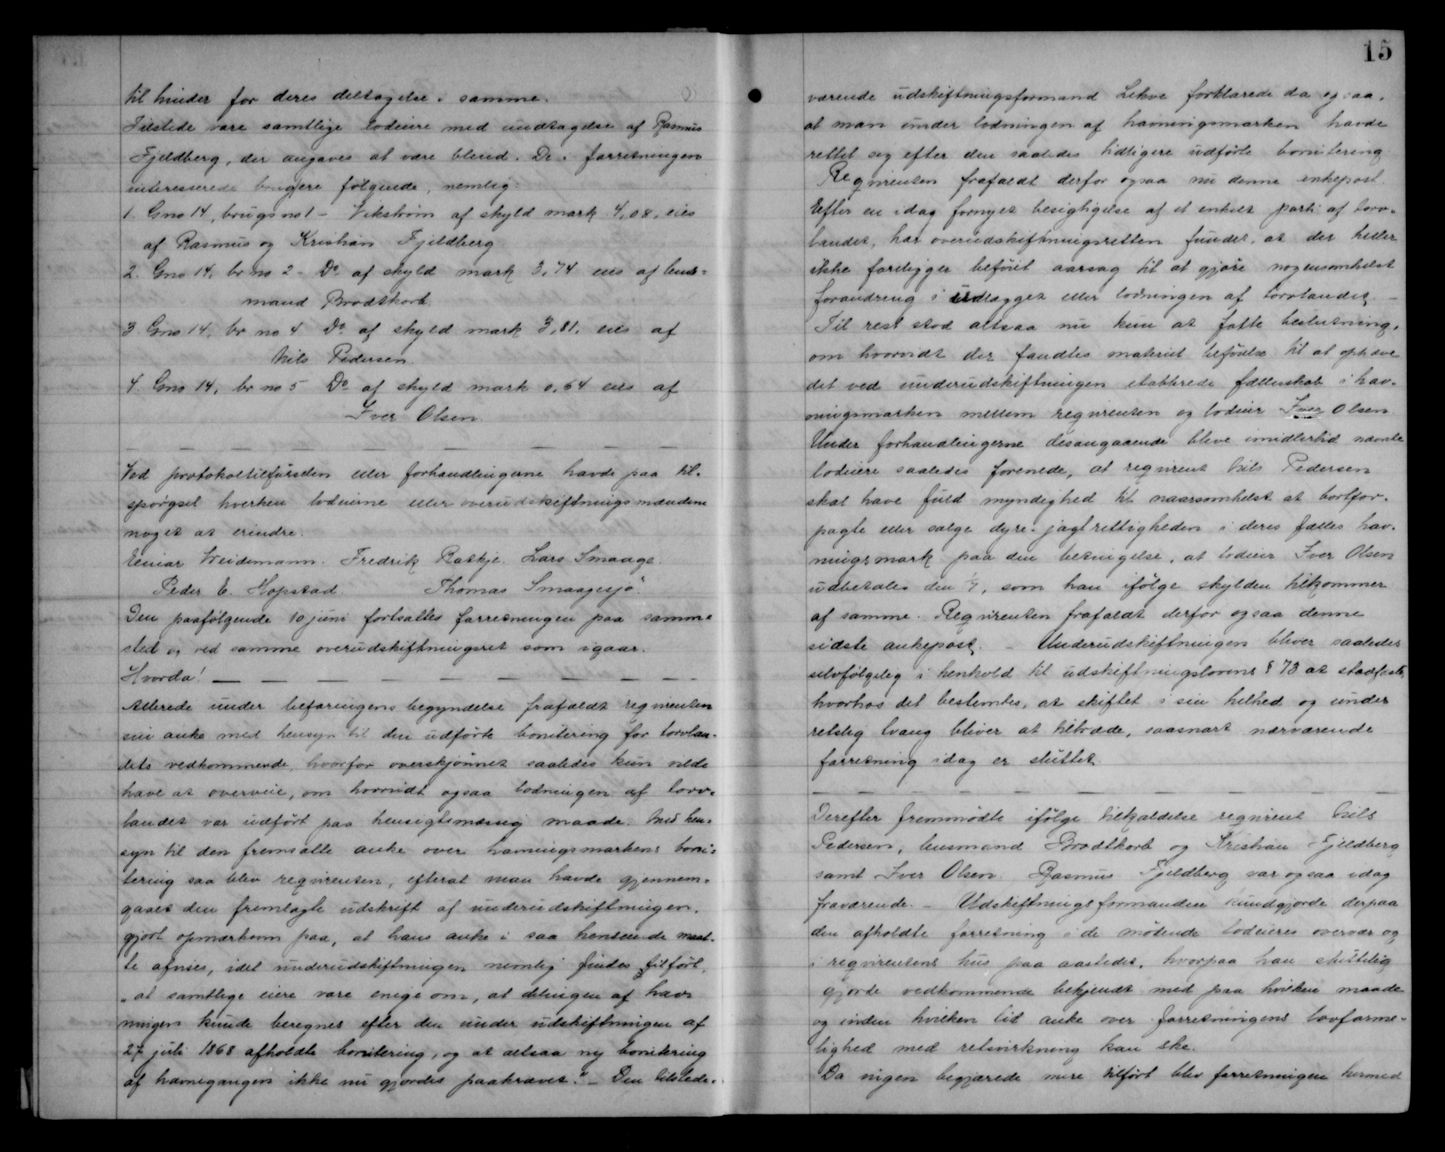 til hinder for deres deltagelse i samme.
Tilstede vare samtlige lodeiere med undtagelse af Rasmus
Fjeldberg, der angaves at være blind. De i forretningen
interesserede brugere følgende, nemlig:
1. Gno 14, brugs no 1 – Vikstrøm af skyld mark 4,08, eies
af Rasmus og Kristian Fjeldberg
2. Gno 14, br no 2 – Do af skyld mark 3,74 eies af lens-
mand Brodtkorb
3. Gno 14, br no 4 Do af skyld mark 3,81, eies af
Nils Pedersen
4. Gno 14, br no 5 Do af skyld mark 0,64 eies af
Iver Olsen
Ved protokoltilførselen eller forhandlingerne havde paa til-
spørgsel hverken lodeierne eller overudskiftningsmændene
noget at erindre.
Einar Weidemann. Fredrik Ratkje. Lars Smaage.
Peder E. Hopstad. Thomas Smaagesjø.
Den paafølgende 10 juni fortsattes forretningen paa samme
sted og ved samme overudskiftningsret som igaar.
Hvorda!
Allerede under befaringens begyndelse frafaldt reqvirenten
sin anke med hensyn til den udførte bonitering for torvlan-
dets vedkommende, hvorfor overskjønnet saaledes kun vilde
have at overveie, om hvorvidt ogsaa lodningen af torv-
landet var udført paa hensigtsmæssig maade. Med hen-
syn til den fremsatte anke over havningsmarkens boni-
tering saa blev reqvirenten, efterat man havde gjennem-
gaaet den fremlagte udskrift af underudskiftningen,
gjort opmærksom paa, at hans anke i saa henseende maat-
te afvises, idet underudskiftningen nemlig findes tilført,
„at samtlige eiere vare enige om, at delingen af hav-
ningen kunde beregnes efter den under udskiftningen af
27 juli 1868 afholdte bonitering, og at altsaa ny bonitering
af havnegangen ikke nu gjordes paakrævet." – Den tilstede-
15
værende udskiftningsformand Lekve forklarede da ogsaa,
at man under lodningen af havningsmarken havde
rettet sig efter den saaledes tidligere udførte bonitering.
Reqvirenten frafaldt derfor ogsaa nu denne ankepost.
Efter en idag fornyet besigtigelse af et enkelt parti af torv-
landet, har overudskiftningsretten fundet, at der heller
ikke foreligger beføiet aarsag til at gjøre nogensomhelst
forandring i udlægget eller lodningen af torvlandet. –
Til rest stod altsaa nu kun at fatte beslutning,
om hvorvidt der fandtes materiel beføielse til at ophæve
det ved underudskiftningen etablerede fællesskab i hav-
ningsmarken mellem reqvirenten og lodeier Iver Olsen
Under forhandlingerne desangaaende bleve imidlertid nævnte
lodeiere saaledes forenede, at reqvirent Nils Pedersen
skal have fuld myndighed til naarsomhelst at bortfor-
pagte eller sælge dyre-jagtrettigheden i deres fælles hav-
ningsmark paa den betingelse, at lodeier Iver Olsen
udbetales den 1/7, som han ifølge skylden tilkommer
af samme. Reqvirenten frafaldt derfor ogsaa denne
sidste ankepost. – Underudskiftningen bliver saaledes
selvfølgelig i henhold til udskiftningslovens § 73 at stadfæste,
hvorhos det bestemtes, at skiftet i sin helhed og under
retslig tvang bliver at tiltræde, saasnart nærværende
forretning idag er sluttet.
Derefter fremmødte ifølge tilkaldelse reqvirent Nils
Pedersen, lensmand Brodtkorb og Kristian Fjeldberg
samt Iver Olsen. Rasmus Fjeldberg var ogsaa idag
fraværende. – Udskiftningsformanden kundgjorde derpaa
den afholdte forretning i de mødende lodeieres overvær og
i reqvirentens hus paa aastedet, hvorpaa han sluttelig
gjorde vedkommende bekjendt med paa hvilken maade
og inden hvilken tid anke over forretningens lovforme-
lighed med retsvirkning kan ske.
Da ingen begjærede mere tilført blev forretningen hermed